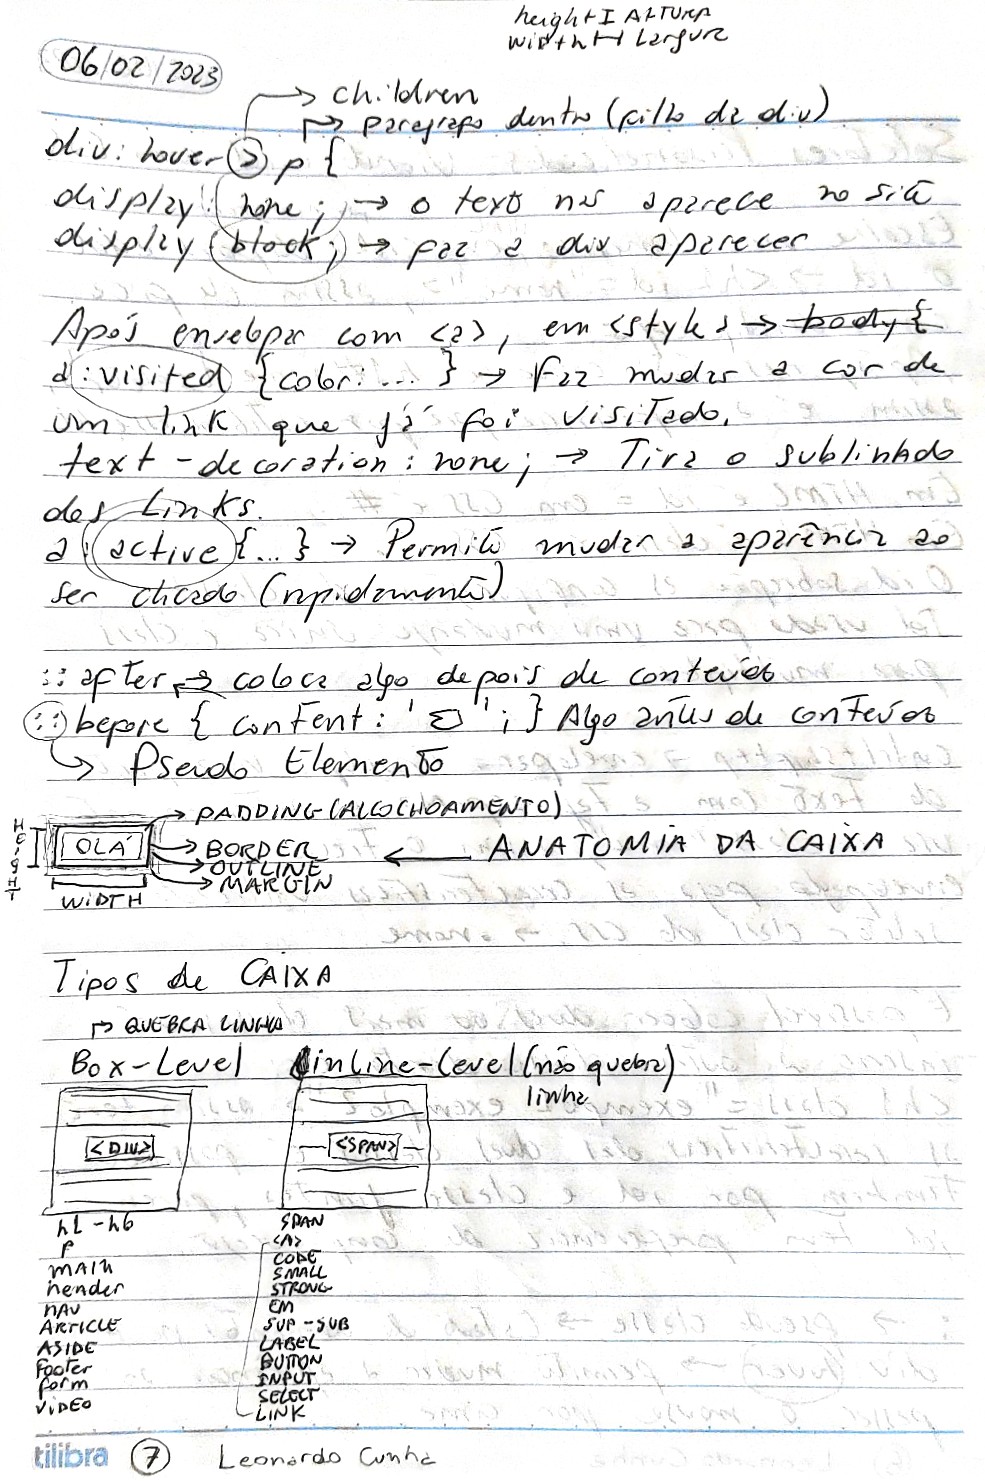 height I ALTURA
width H Largura
06/02/2023
→ children
→ paragrafo dentro (filho da div)
div: hover > p {
display: none; → o texto nas aparece no site
display (block; → faz a div aparecer
Após envelopar com <a>, em <style> → body {
a: visited {color: ... } → Faz mudar a cor de
um link que já foi visitado.
text-decoration: none; → Tira o sublinhado
des Links.
a: active {...} → Permite mudar a aparência ao
ser clicado (rapidamente)
:: after → coloca algo depois de conteúdo
:: before { content: ' '; } Algo antes de conteúdo
→ Pseudo Elemento
→ PADDING (ALCOCHOAMENTO)
HEIGHT
OLÁ
→ BORDER
← ANATOMIA DA CAIXA
→ OUTLINE
→ MARGIN
WIDTH
Tipos de CAIXA
→ QUEBRA LINHA
Box-Level inline-Level (não quebra)
linha
<DIV> <SPAN>
h1 - h6
P
MAIN
header
NAV
ARTICLE
ASIDE
Footer
form
VIDEO
SPAN
<A>
CODE
SMALL
STRONG
EM
SUP - SUB
LABEL
BUTTON
INPUT
SELECT
LINK
tilibra 7 Leonardo Cunha